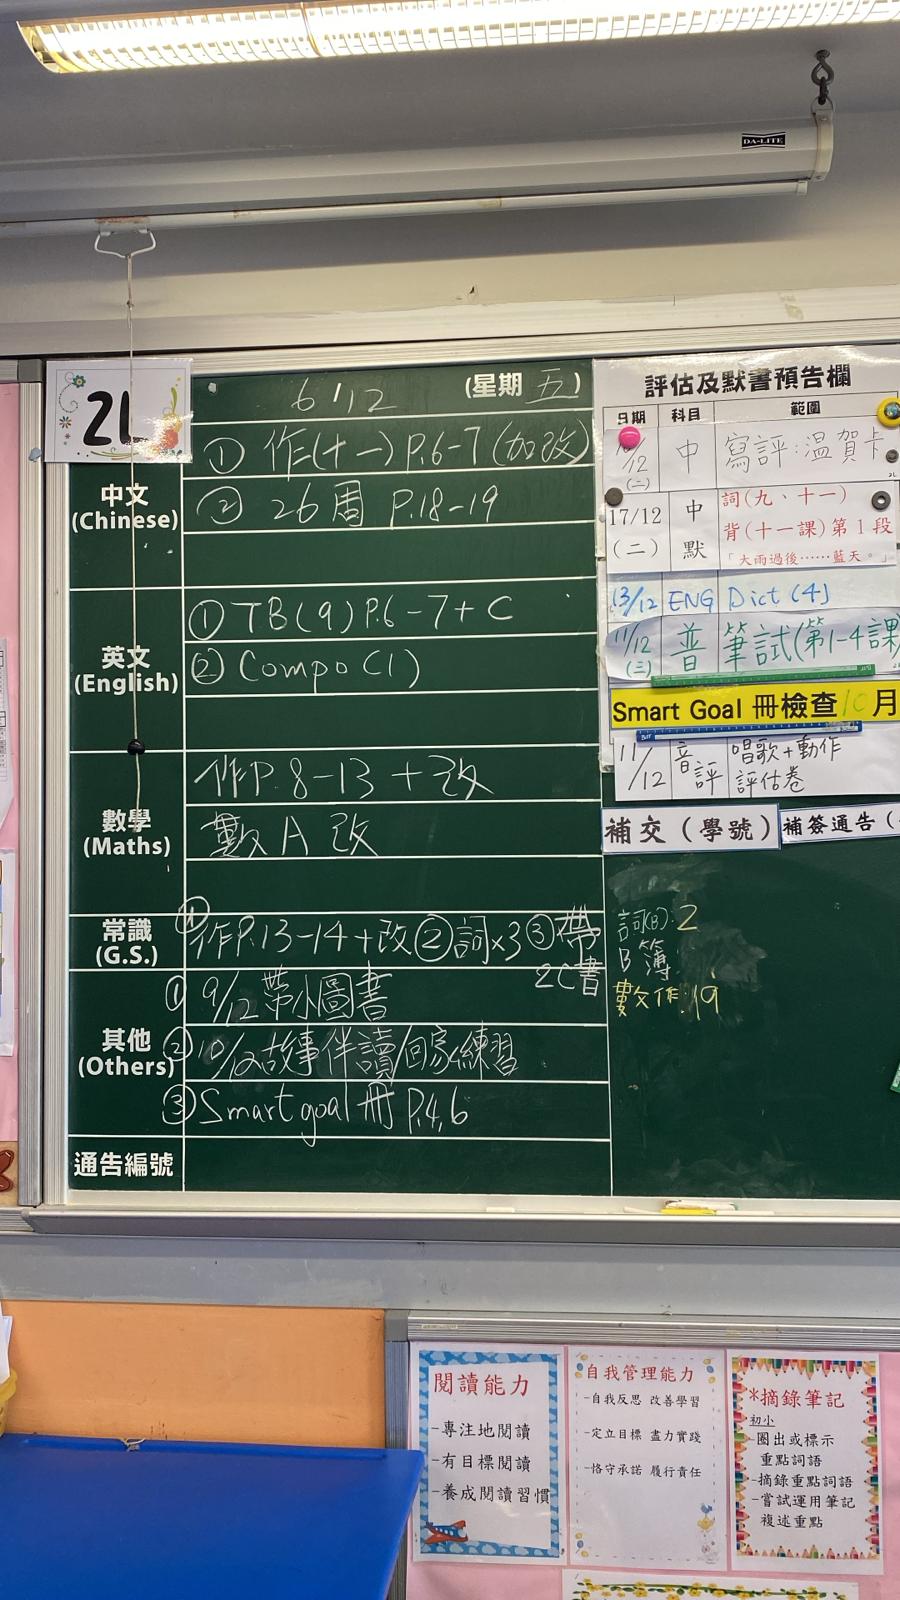 DA-LITE
2L
6/12 (星期 五)
中文
(Chinese)
① 作(十一) P.6-7 (加改)
② 26周 P.18-19
英文
(English)
① TB(9) P.6-7 + C
② Compo (1)
數學
(Maths)
作P.8-13 + 改
數A 改
常識
(G.S.)
① 作P.13-14 + 改 ② 詞x3 ③ 帶
2C書
其他
(Others)
① 9/12 帶小圖書
② 10/12 故事伴讀/回家練習
③ Smart goal 冊 P.4,6
通告編號
評估及默書預告欄
日期 科目 範圍
/12 (二) 中 寫評:溫賀卡
17/12 (二) 中默 詞(九、十一)
背(十一課)第1段
「大雨過後……藍天。」
13/12 ENG Dict (4)
11/12 (三) 普 筆試(第1-4課)
Smart Goal 冊檢查 10月
11/12 音評 唱歌+動作
評估卷
補交(學號) 補簽通告(
詞(B): 2
B簿:
數作: 19
閱讀能力
-專注地閱讀
-有目標閱讀
-養成閱讀習慣
自我管理能力
-自我反思 改善學習
-定立目標 盡力實踐
-恪守承諾 履行責任
*摘錄筆記
初小
-圈出或標示
重點詞語
-摘錄重點詞語
-嘗試運用筆記
複述重點